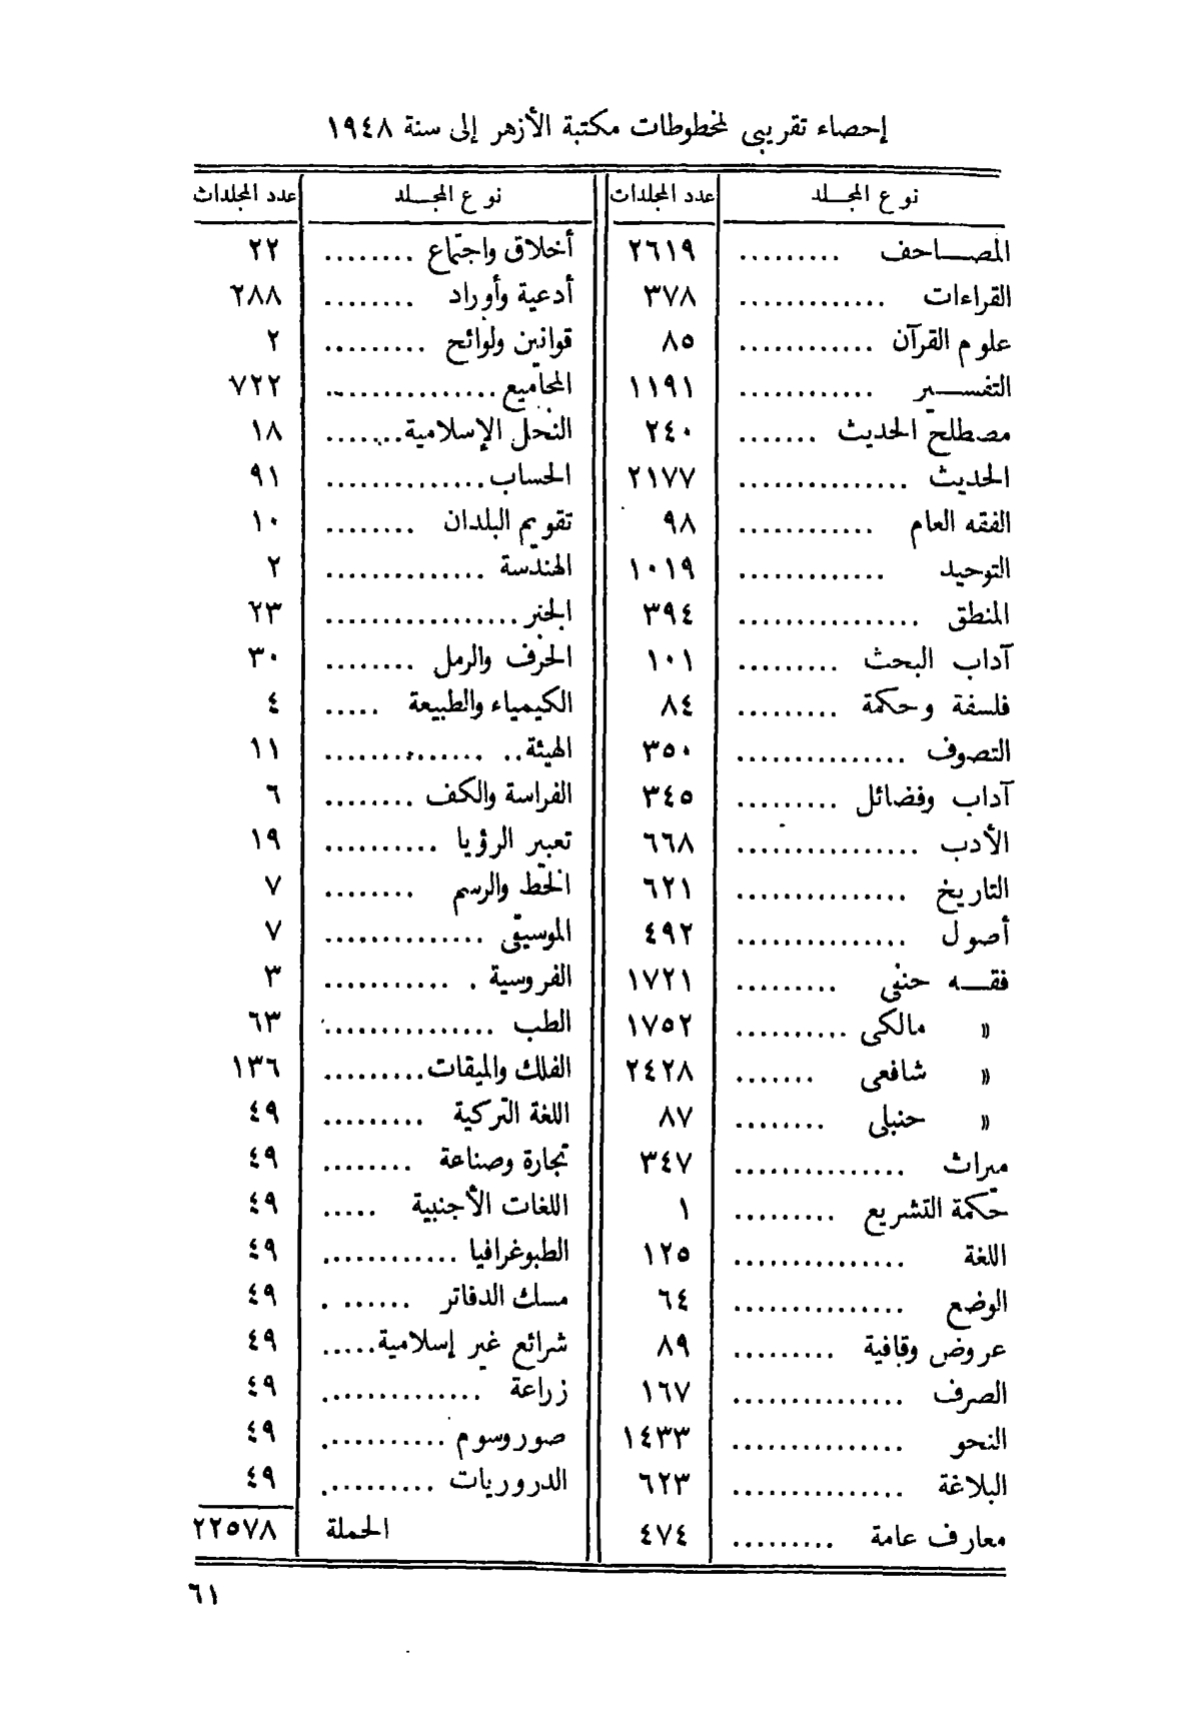 إحصاء تقريبى لمخطوطات مكتبة الأزهر إلى سنة ١٩٤٨
نوع المجلد عدد المجلدات نوع المجلد عدد المجلدات
المصاحف ......... ٢٦١٩ أخلاق واجتماع ........ ٢٢
القراءات ............. ٣٧٨ أدعية وأوراد ........ ٢٨٨
علوم القرآن ............ ٨٥ قوانين ولوائح ......... ٢
التفسير ............ ١١٩١ المجاميع ............... ٧٢٢
مصطلح الحديث ....... ٢٤٠ النحل الإسلامية....... ١٨
الحديث ............... ٢١٧٧ الحساب.............. ٩١
الفقه العام ............ ٩٨ تقويم البلدان ........ ١٠
التوحيد ............. ١٠١٩ الهندسة .............. ٢
المنطق ................ ٣٩٤ الجنر................. ٢٣
آداب البحث ......... ١٠١ الحرف والرمل ........ ٣٠
فلسفة وحكمة ......... ٨٤ الكيمياء والطبيعة ..... ٤
التصوف ............... ٣٥٠ الهيئة.. .............. ١١
آداب وفضائل ......... ٣٤٥ الفراسة والكف ........ ٦
الأدب ................ ٦٦٨ تعبير الرؤيا .......... ١٩
التاريخ ............... ٦٢١ الخط والرسم ........ ٧
أصول ............... ٤٩٢ الموسيقى .............. ٧
فقه حنفى ......... ١٧٢١ الفروسية . ........... ٣
« مالكى .......... ١٧٥٢ الطب ............... ٦٣
« شافعى ....... ٢٤٢٨ الفلك والميقات......... ١٣٦
« حنبلى ........ ٨٧ اللغة التركية ......... ٤٩
ميراث ............... ٣٤٧ تجارة وصناعة ........ ٤٩
حكمة التشريع ......... ١ اللغات الأجنبية ..... ٤٩
اللغة ............... ١٢٥ الطبوغرافيا ............ ٤٩
الوضع ............... ٦٤ مسك الدفاتر ...... . ٤٩
عروض وقافية ......... ٨٩ شرائع غير إسلامية..... ٤٩
الصرف ............... ١٦٧ زراعة .............. ٤٩
النحو ............... ١٤٣٣ صور وسوم ........... ٤٩
البلاغة ............... ٦٢٣ الدروريات .......... ٤٩
معارف عامة ......... ٤٧٤ الجملة ٢٢٥٧٨
٦١